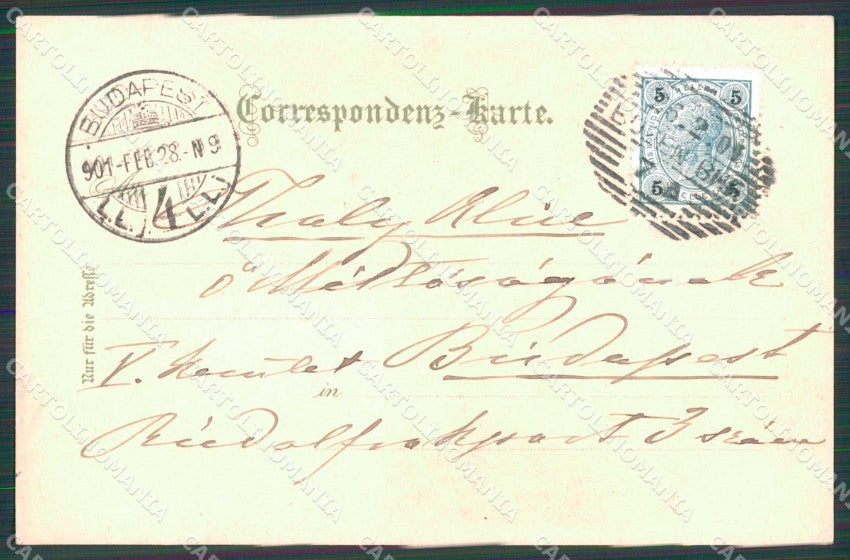 Correspondenz-Karte.
BUDAPEST
901-FEB.28.-N9
4
5 5
5 5
Thaly Alice
ő Méltóságának
V. Kerület Budapest
in
Rudolfrakpart 3 szám
Nur für die Adresse
CARTOLINOMANIA